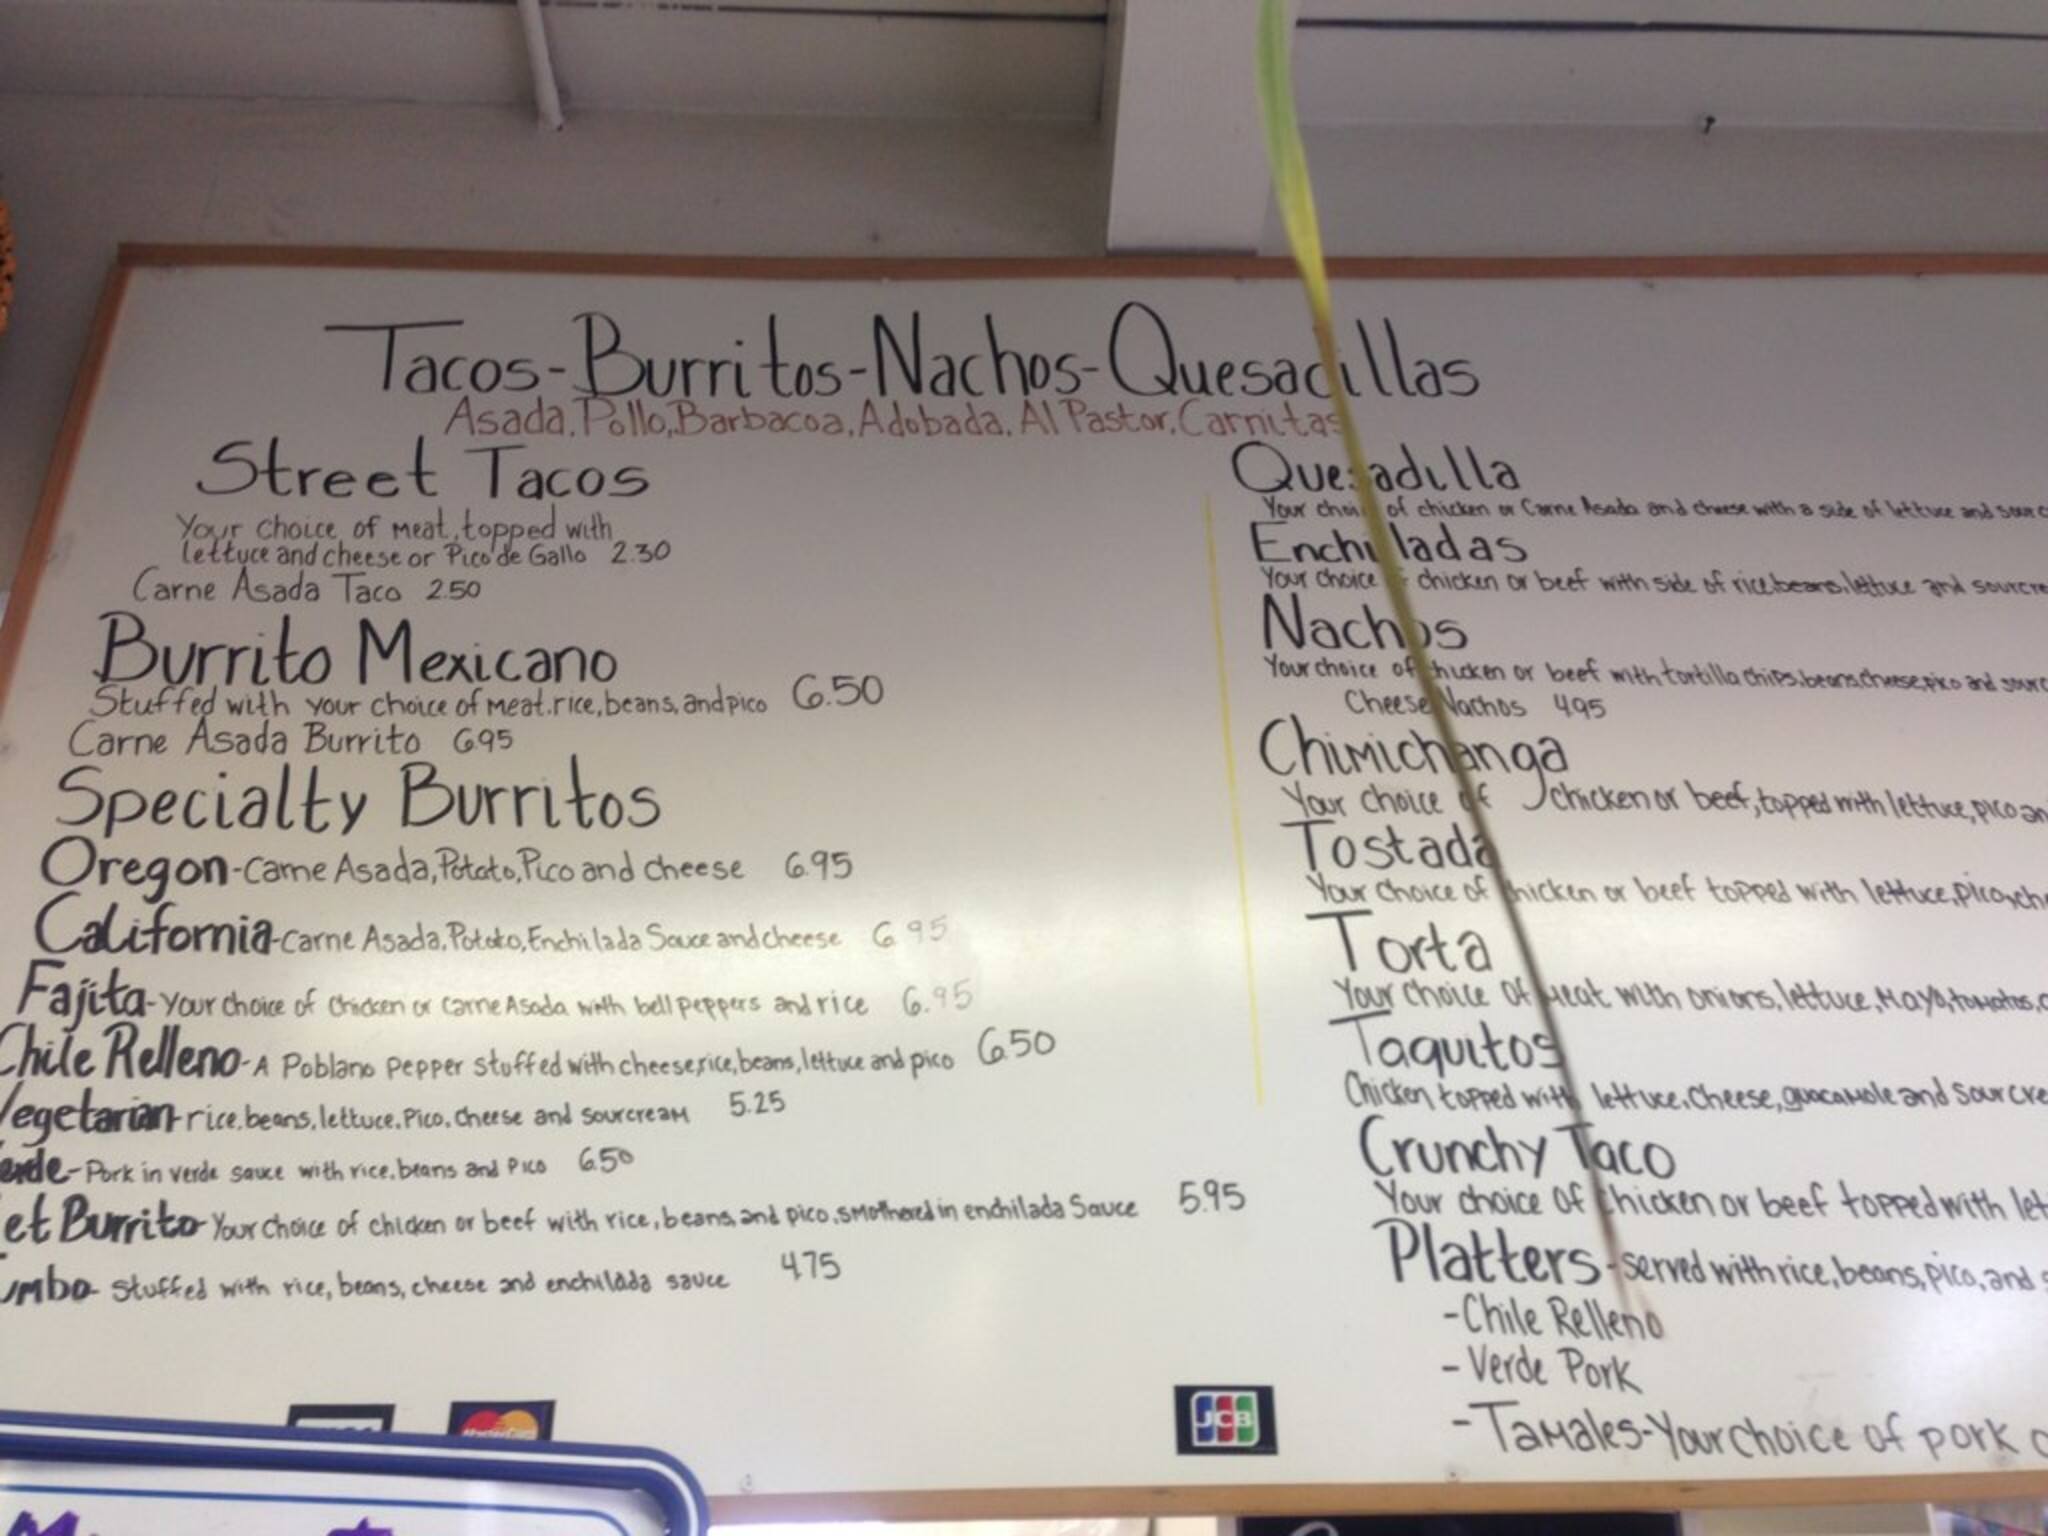 Tacos-Burritos-Nachos-Quesadillas
Asada, Pollo, Barbacoa, Adobada, Al Pastor, Carnitas
Street Tacos
Your choice of meat, topped with
lettuce and cheese or Pico de Gallo 2.30
Carne Asada Taco 2.50
Burrito Mexicano
Stuffed with your choice of meat, rice, beans, and pico 6.50
Carne Asada Burrito 6.95
Specialty Burritos
Oregon-Carne Asada, Potato, Pico and cheese 6.95
California-Carne Asada, Potato, Enchilada Sauce and cheese 6.95
Fajita-Your choice of chicken or Carne Asada with bell peppers and rice 6.95
Chile Relleno-A Poblano pepper stuffed with cheese, rice, beans, lettuce and pico 6.50
Vegetarian-rice, beans, lettuce, Pico, cheese and sourcream 5.25
-Pork in verde sauce with rice, beans and pico 6.50
Burrito-Your choice of chicken or beef with rice, beans, and pico, smothered in enchilada Sauce 5.95
-Stuffed with rice, beans, cheese and enchilada sauce 4.75
Quesadilla
Your choice of chicken or Carne Asada and cheese with a side of lettuce and
Enchiladas
Your choice of chicken or beef with side of rice, beans, lettuce and
Nachos
Your choice of chicken or beef with tortilla chips, beans, cheese, pico and
Cheese Nachos 4.95
Chimichanga
Your choice of chicken or beef, topped with lettuce, pico
Tostada
Your choice of chicken or beef topped with lettuce, pico,
Torta
Your choice of meat with onions, lettuce, mayo, tomatos,
Taquitos
Chicken topped with lettuce, cheese, guacamole and
Crunchy Taco
Your choice of chicken or beef topped with
Platters-served with rice, beans, pico, and
-Chile Relleno
-Verde Pork
-Tamales-Your choice of pork
MasterCard
JCB